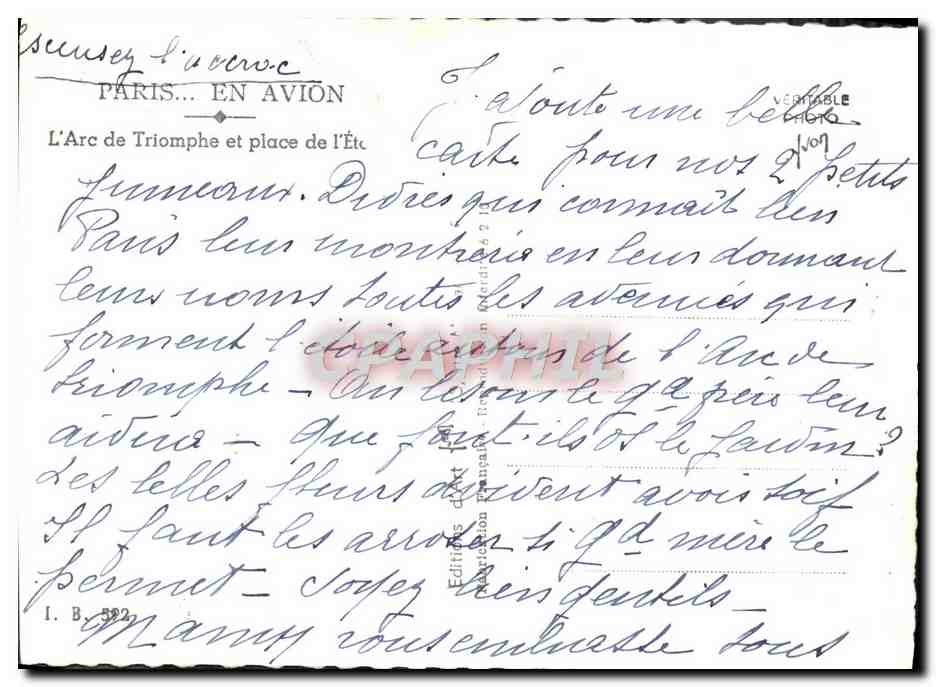 Excusez l'accroc
PARIS... EN AVION
L'Arc de Triomphe et place de l'Éto
VÉRITABLE
PHOTO
J'ajoute une belle
carte pour nos 2 petits
jumeaux. Didier qui connait bien
Paris leur montrera en leur donnant
leurs noms toutes les avenues qui
forment l'étoile autour de l'Arc de
triomphe - Au besoin le gd père leur
aidera - Que font-ils ds le jardin?
Les belles fleurs doivent avoir soif
Il faut les arroser si gd mère le
permet - Soyez bien gentils -
Mamy vous embrasse tous
I. B. 522
Editions d'Art
Fabrication Française - Reproduction Interdite
CPAPHIL